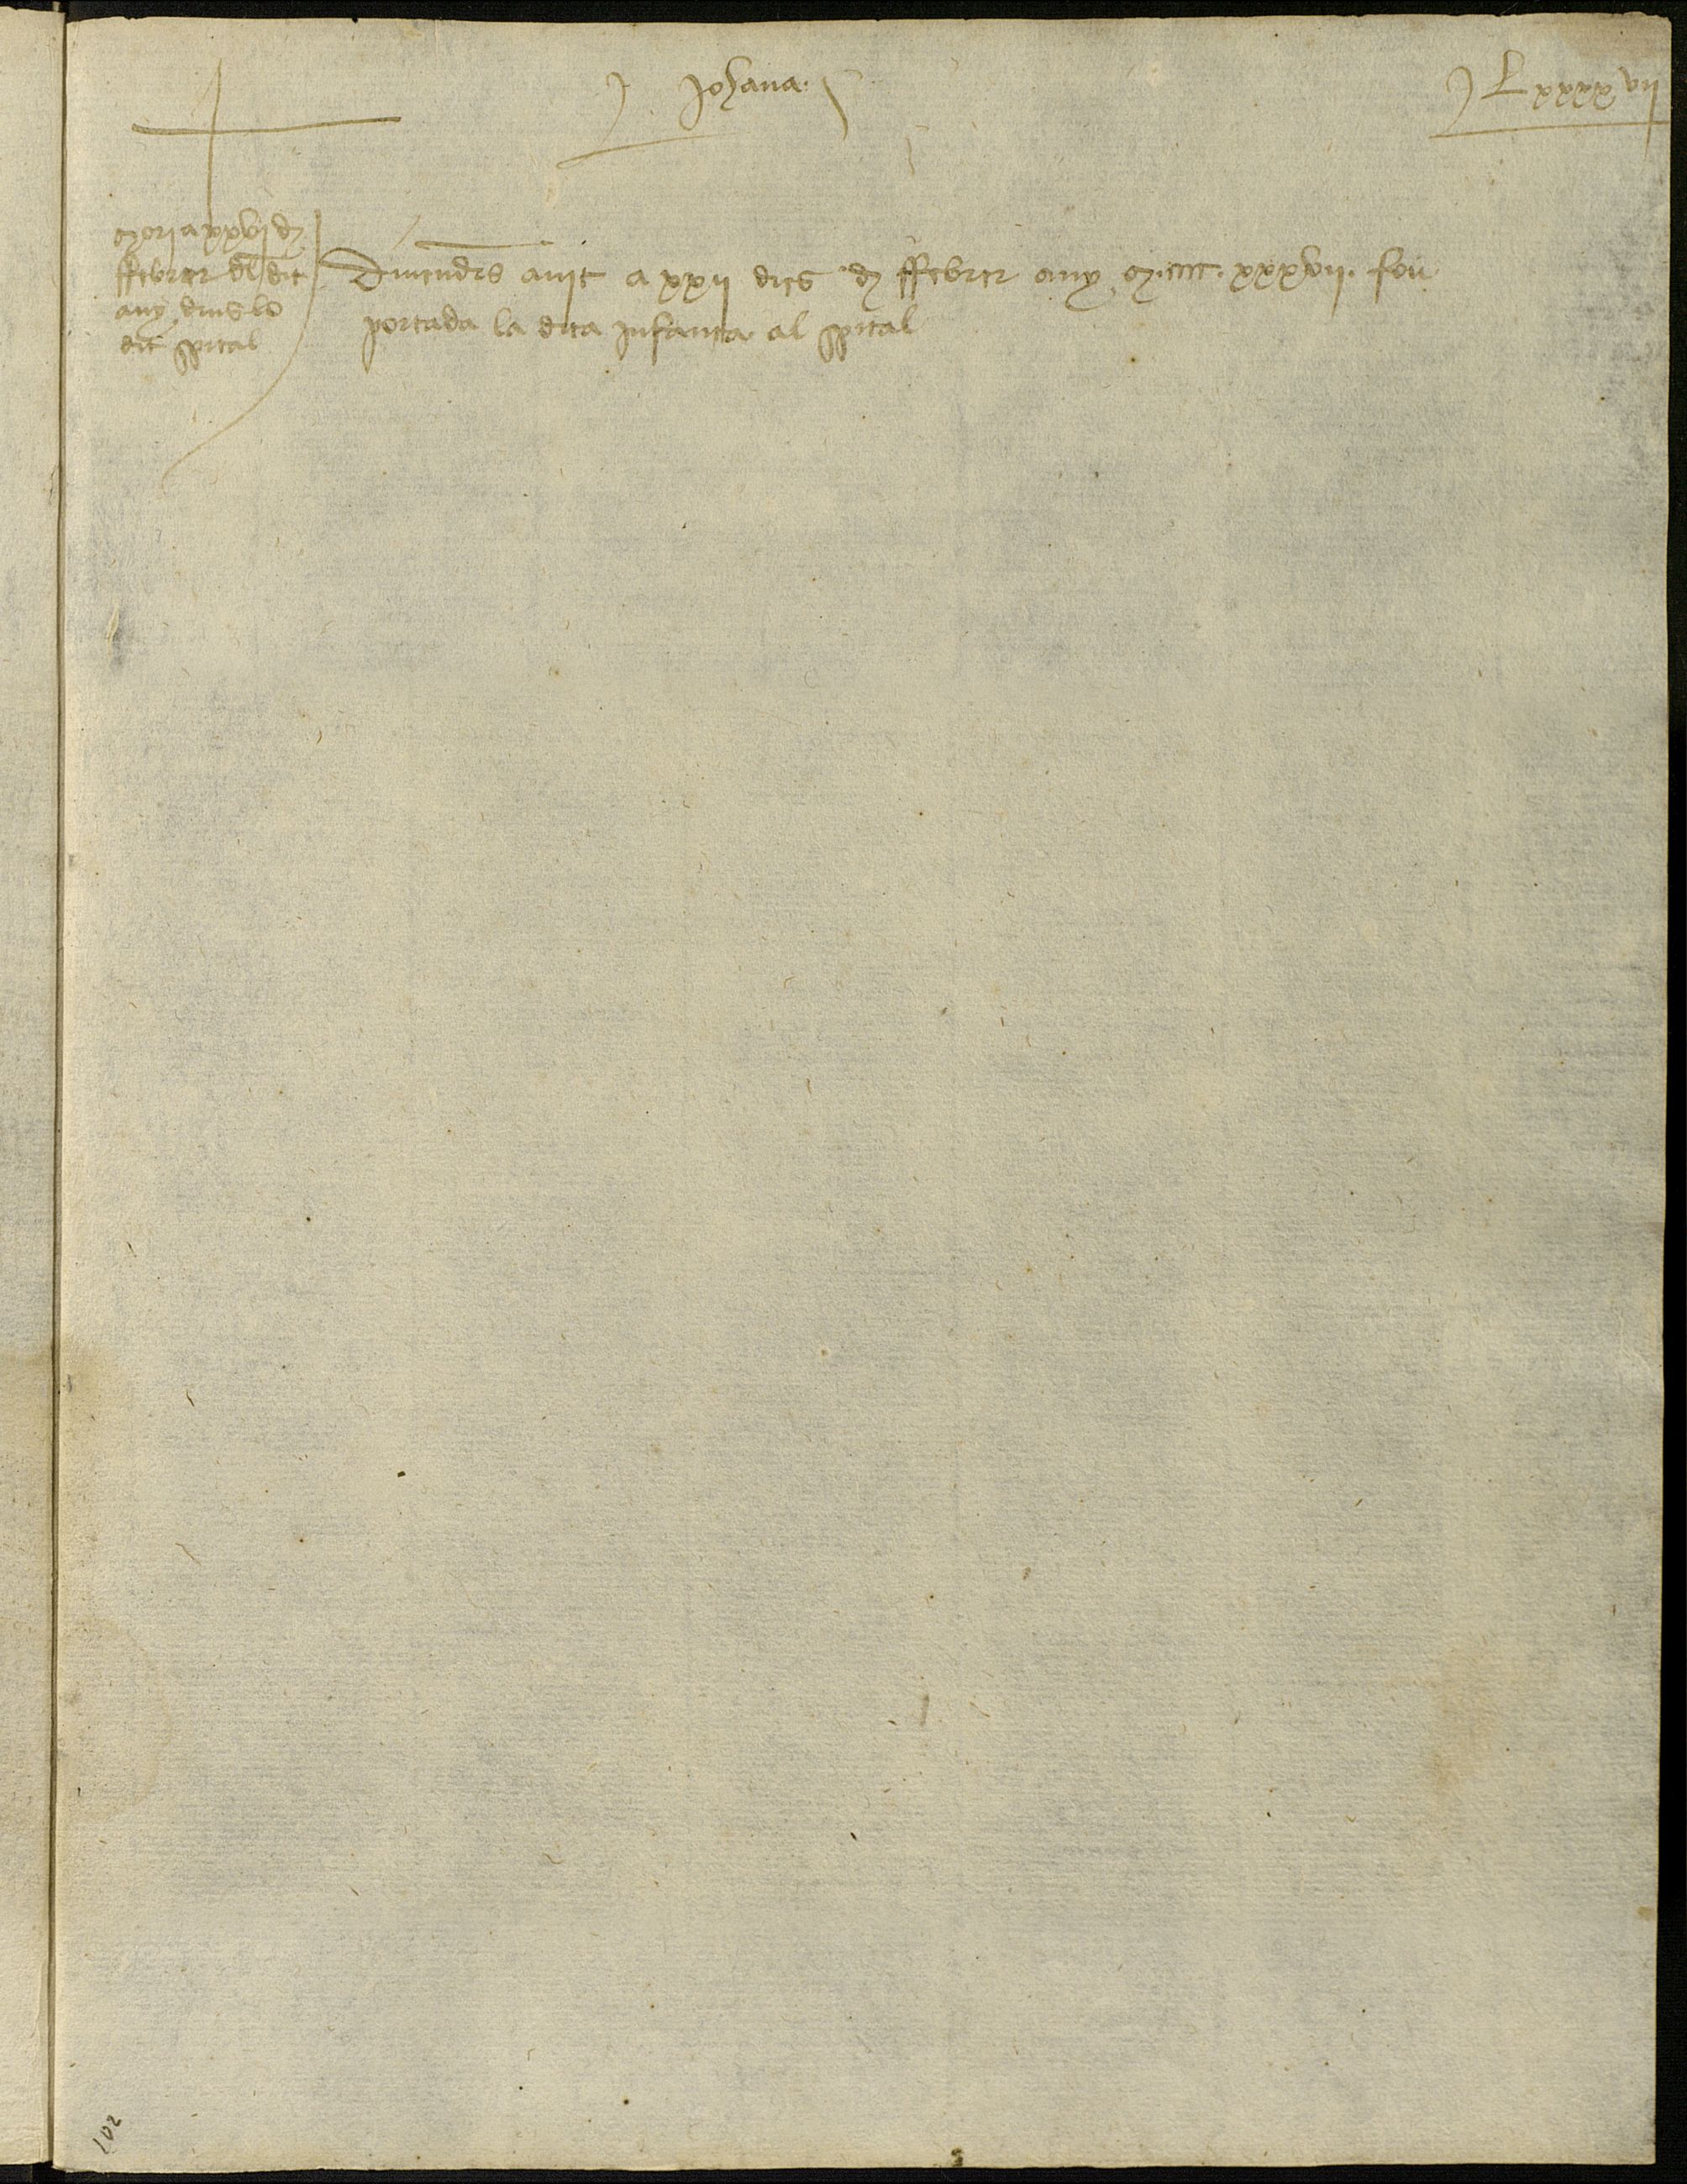 Johana
Lxxxxvii
Mori a xxvi de
ffebrer del dit
any dins lo
dit spital
Divendres a nit a xxii dies de ffebrer any M cccc xxxvii. fou
portada la dita infanta al spital
102